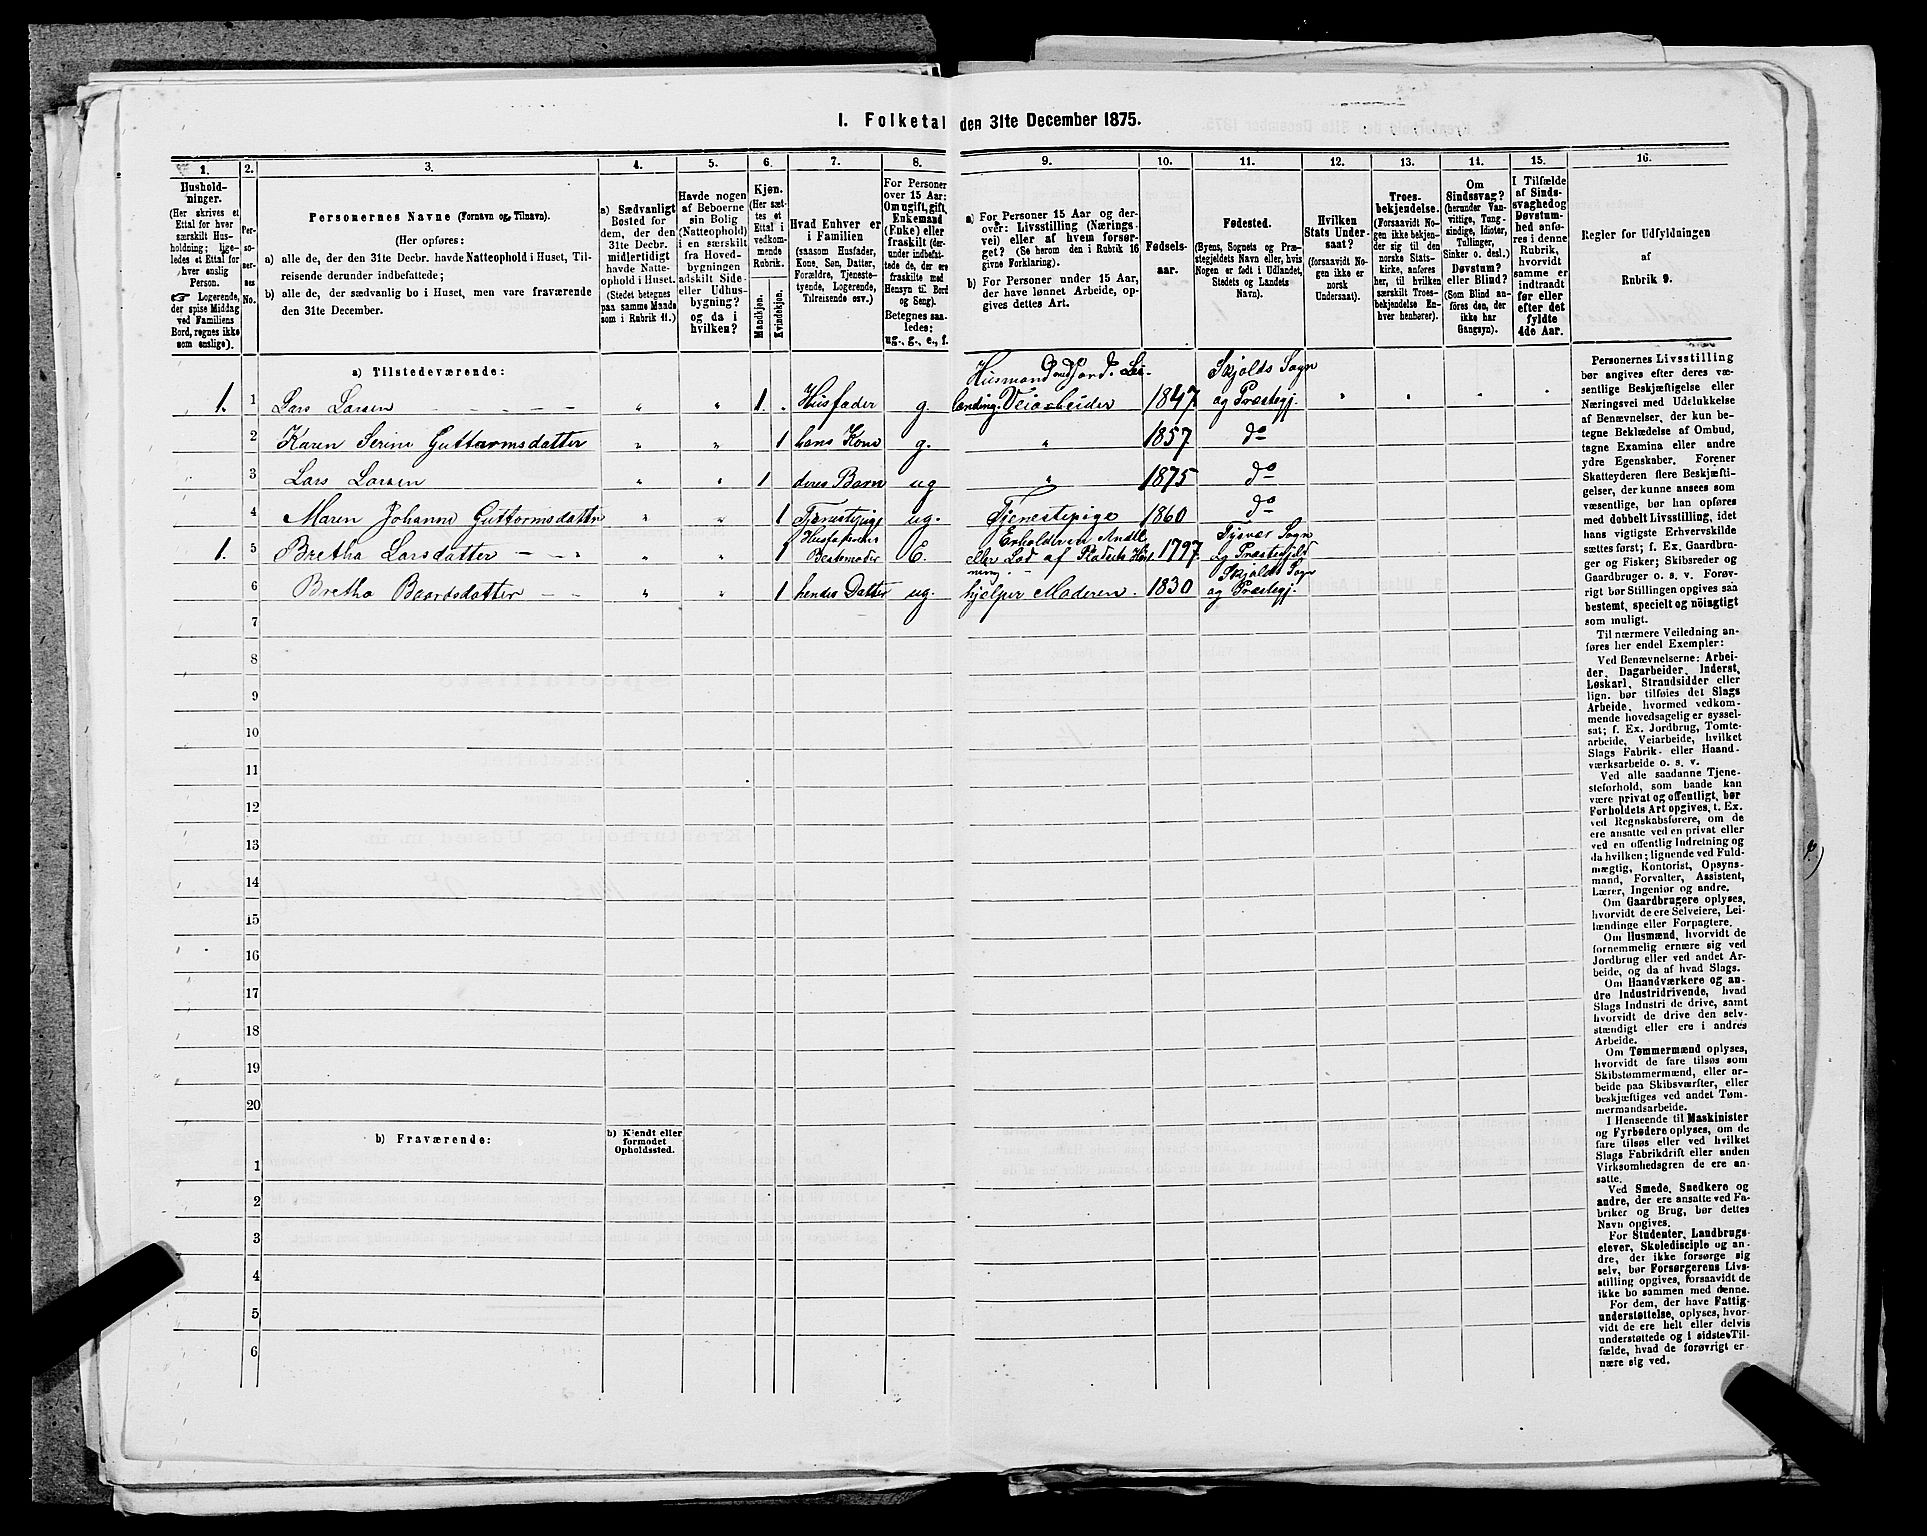 1. Folketal den 31te December 1875.
1. 2. 3. 4. 5. 6. 7. 8. 9. 10. 11. 12. 13. 14. 15. 16.
Hushold-
ninger.
(Her skrives et
Ettal for hver
særskilt Hus-
holdning; lige-
ledes et Ettal for
hver enslig
Person.
☞ Logerende,
der spise Middag
ved Familiens
Bord, regnes ikke
som enslige).
Per-
so-
ner-
nes
No.
Personernes Navne (Fornavn og Tilnavn).
(Her opføres:
a) alle de, der den 31te Decbr. havde Natteophold i Huset, Til-
reisende derunder indbefattede;
b) alle de, der sædvanlig bo i Huset, men vare fraværende
den 31te December.
a) Sædvanligt
Bosted for
dem, der den
31te Decbr.
midlertidigt
havde Natte-
ophold i Huset.
(Stedet betegnes
paa samme Maade
som i Rubrik 11.)
Havde nogen
af Beboerne
sin Bolig
(Natteophold)
i en særskilt
fra Hoved-
bygningen
adskilt Side
eller Udhus-
bygning?
og da i
hvilken?
Kjøn.
(Her sæt-
tes et
Ettal i
vedkom-
mende
Rubrik.
Mandkjøn.
Kvindekjøn.
Hvad Enhver er
i Familien
(saasom Husfader,
Kone, Søn, Datter,
Forældre, Tjeneste-
tyende, Logerende,
Tilreisende osv.)
For Personer
over 15 Aar:
Om ugift, gift,
Enkemand
(Enke) eller
fraskilt (der-
under indbefat-
tede de, der ere
fraskilte med
Hensyn til Bord
og Seng).
Betegnes saa-
ledes:
ug., g., e., f.
a) For Personer 15 Aar og der-
over: Livsstilling (Nærings-
vei) eller af hvem forsør-
get? (Se herom den i Rubrik 16
givne Forklaring).
b) For Personer under 15 Aar,
der have lønnet Arbeide, op-
gives dettes Art.
Fødsels-
aar.
Fødested.
(Byens, Sognets og Præ-
stegjeldets Navn eller, hvis
Nogen er født i Udlandet,
Stedets og Landets
Navn).
Hvilken
Stats Under-
saat?
(forsaavidt No-
gen ikke er
norsk
Undersaat).
Troes-
bekjendelse.
(Forsaavidt No-
gen ikke bekjen-
der sig til den
norske Stats-
kirke, anføres
her, til hvilken
særskilt Troes-
bekjendelse En-
hver henhører).
Om
Sindssvag?
(herunder Van-
vittige, Tung-
sindige, Idioter,
Tullinger,
Sinker o. desl.)
Døvstum?
eller Blind?
(Som Blind an-
føres den, der
ikke har
Gangsyn).
I Tilfælde
af Sinds-
svaghed og
Døvstum-
hed anfø-
res i denne
Rubrik,
hvorvidt
samme er
indtraadt
før eller
efter det
fyldte
4de Aar.
Regler for Udfyldningen
af
Rubrik 9.
a) Tilstedeværende:
1. 1 Lars Larsen " " 1. Husfader g. Husmand med Jord. Lei-
lænding. Veiarbeider 1847. Skjolds Sogn
og Præstegj.
2 Karen Serine Guttormsdatter " " 1 hans Kone g. " 1857. do
3 Lars Larsen " " 1 deres Barn ug " 1875 do
4 Maren Johanne Guttormsdatter " " 1 Tjenestepige ug. Tjenestepige 1860 do
1. 5 Bretha Larsdatter " " 1 Husfaderens
Bestemoder E. af Pladsen 1797. Tysvær Sogn
og Præstegjeld
6 Bretha Baardsdatter " " 1 hendes Datter ug. hjelper Moderen. 1830 Skjolds Sogn
og Præstegj.
7
8
9
10
11
12
13
14
15
16
17
18
19
20
b) Fraværende:
b) Kjendt eller
formodet
Opholdssted.
1
2
3
4
5
6
Personernes Livsstilling
bør angives efter deres væ-
sentlige Beskjæftigelse eller
Næringsvei med Udelukkelse
af Benævnelser, der kun be-
tegne Beklædelse af Ombud,
tagne Examina eller andre
ydre Egenskaber. Forener
Skatteyderen flere Beskjæfti-
gelser, der kunne ansees som
væsentlige, bør han opføres
med dobbelt Livsstilling, idet
hans vigtigste Erhvervskilde
sættes først; f. Ex. Gaardbru-
ger og Fisker; Skibsreder og
Gaardbruger o. s. v. Forøv-
rigt bør Stillingen opgives saa
bestemt, specielt og nöiagtigt
som muligt.
Til nærmere Veiledning an-
føres her endel Exempler:
Ved Benævnelserne: Arbei-
der, Dagarbeider, Inderst,
Løskarl, Strandsidder eller
lign. bør tilføies det Slags
Arbeide, hvormed vedkom-
mende hovedsagelig er syssel-
sat; f. Ex. Jordbrug, Tomte-
arbeide, Veiarbeide, hvilket
Slags Fabrik- eller Haand-
værksarbeide o. s. v.
Ved alle saadanne Tjene-
steforhold, som baade kan
være privat og offentligt, bør
Forholdets Art opgives, t. Ex.
ved Regnskabsførere, om de
ere ansatte ved en privat eller
ved en offentlig Indretning og
da hvilken; lignende ved Fuld-
mægtig, Kontorist, Opsyns-
mand, Forvalter, Assistent,
Lærer, Ingeniør og andre.
Om Gaardbrugere oplyses,
hvorvidt de ere Selveiere, Lei-
lændinge eller Forpagtere.
Om Husmænd, hvorvidt de
fornemmelig ernære sig ved
Jordbrug eller ved andet Ar-
beide, og da af hvad Slags.
Om Haandværkere og an-
dre Industridrivende, hvad
Slags Industri de drive, samt
hvorvidt de drive den selv-
stændigt eller ere i andres
Arbeide.
Om Tømmermænd oplyses,
hvorvidt de fare tilsøs som
Skibstømmermænd, eller ar-
beide paa Skibsværfter, eller
beskjæftiges ved andet Tøm-
mermandsarbeide.
I Henseende til Maskinister
og Fyrbødere oplyses, om de
fare tilsøs eller ved hvilket
Slags Fabrikdrift eller anden
Virksomhedsgren de ere an-
satte.
Ved Smede, Snedkere og
andre, der ere ansatte ved Fa-
briker og Brug, bør dettes
Navn opgives.
For Studenter, Landbrugs-
elever, Skoledisciple og an-
dre, der ikke forsørge sig
selv, bør Forsørgerens Livs-
stilling opgives, forsaavidt de
ikke bo sammen med denne.
For dem, der have Fattig-
understøttelse, oplyses, hvor-
vidt de ere helt eller delvis
understøttede og i sidste Til-
fælde, hvad de forøvrigt er-
nære sig ved.